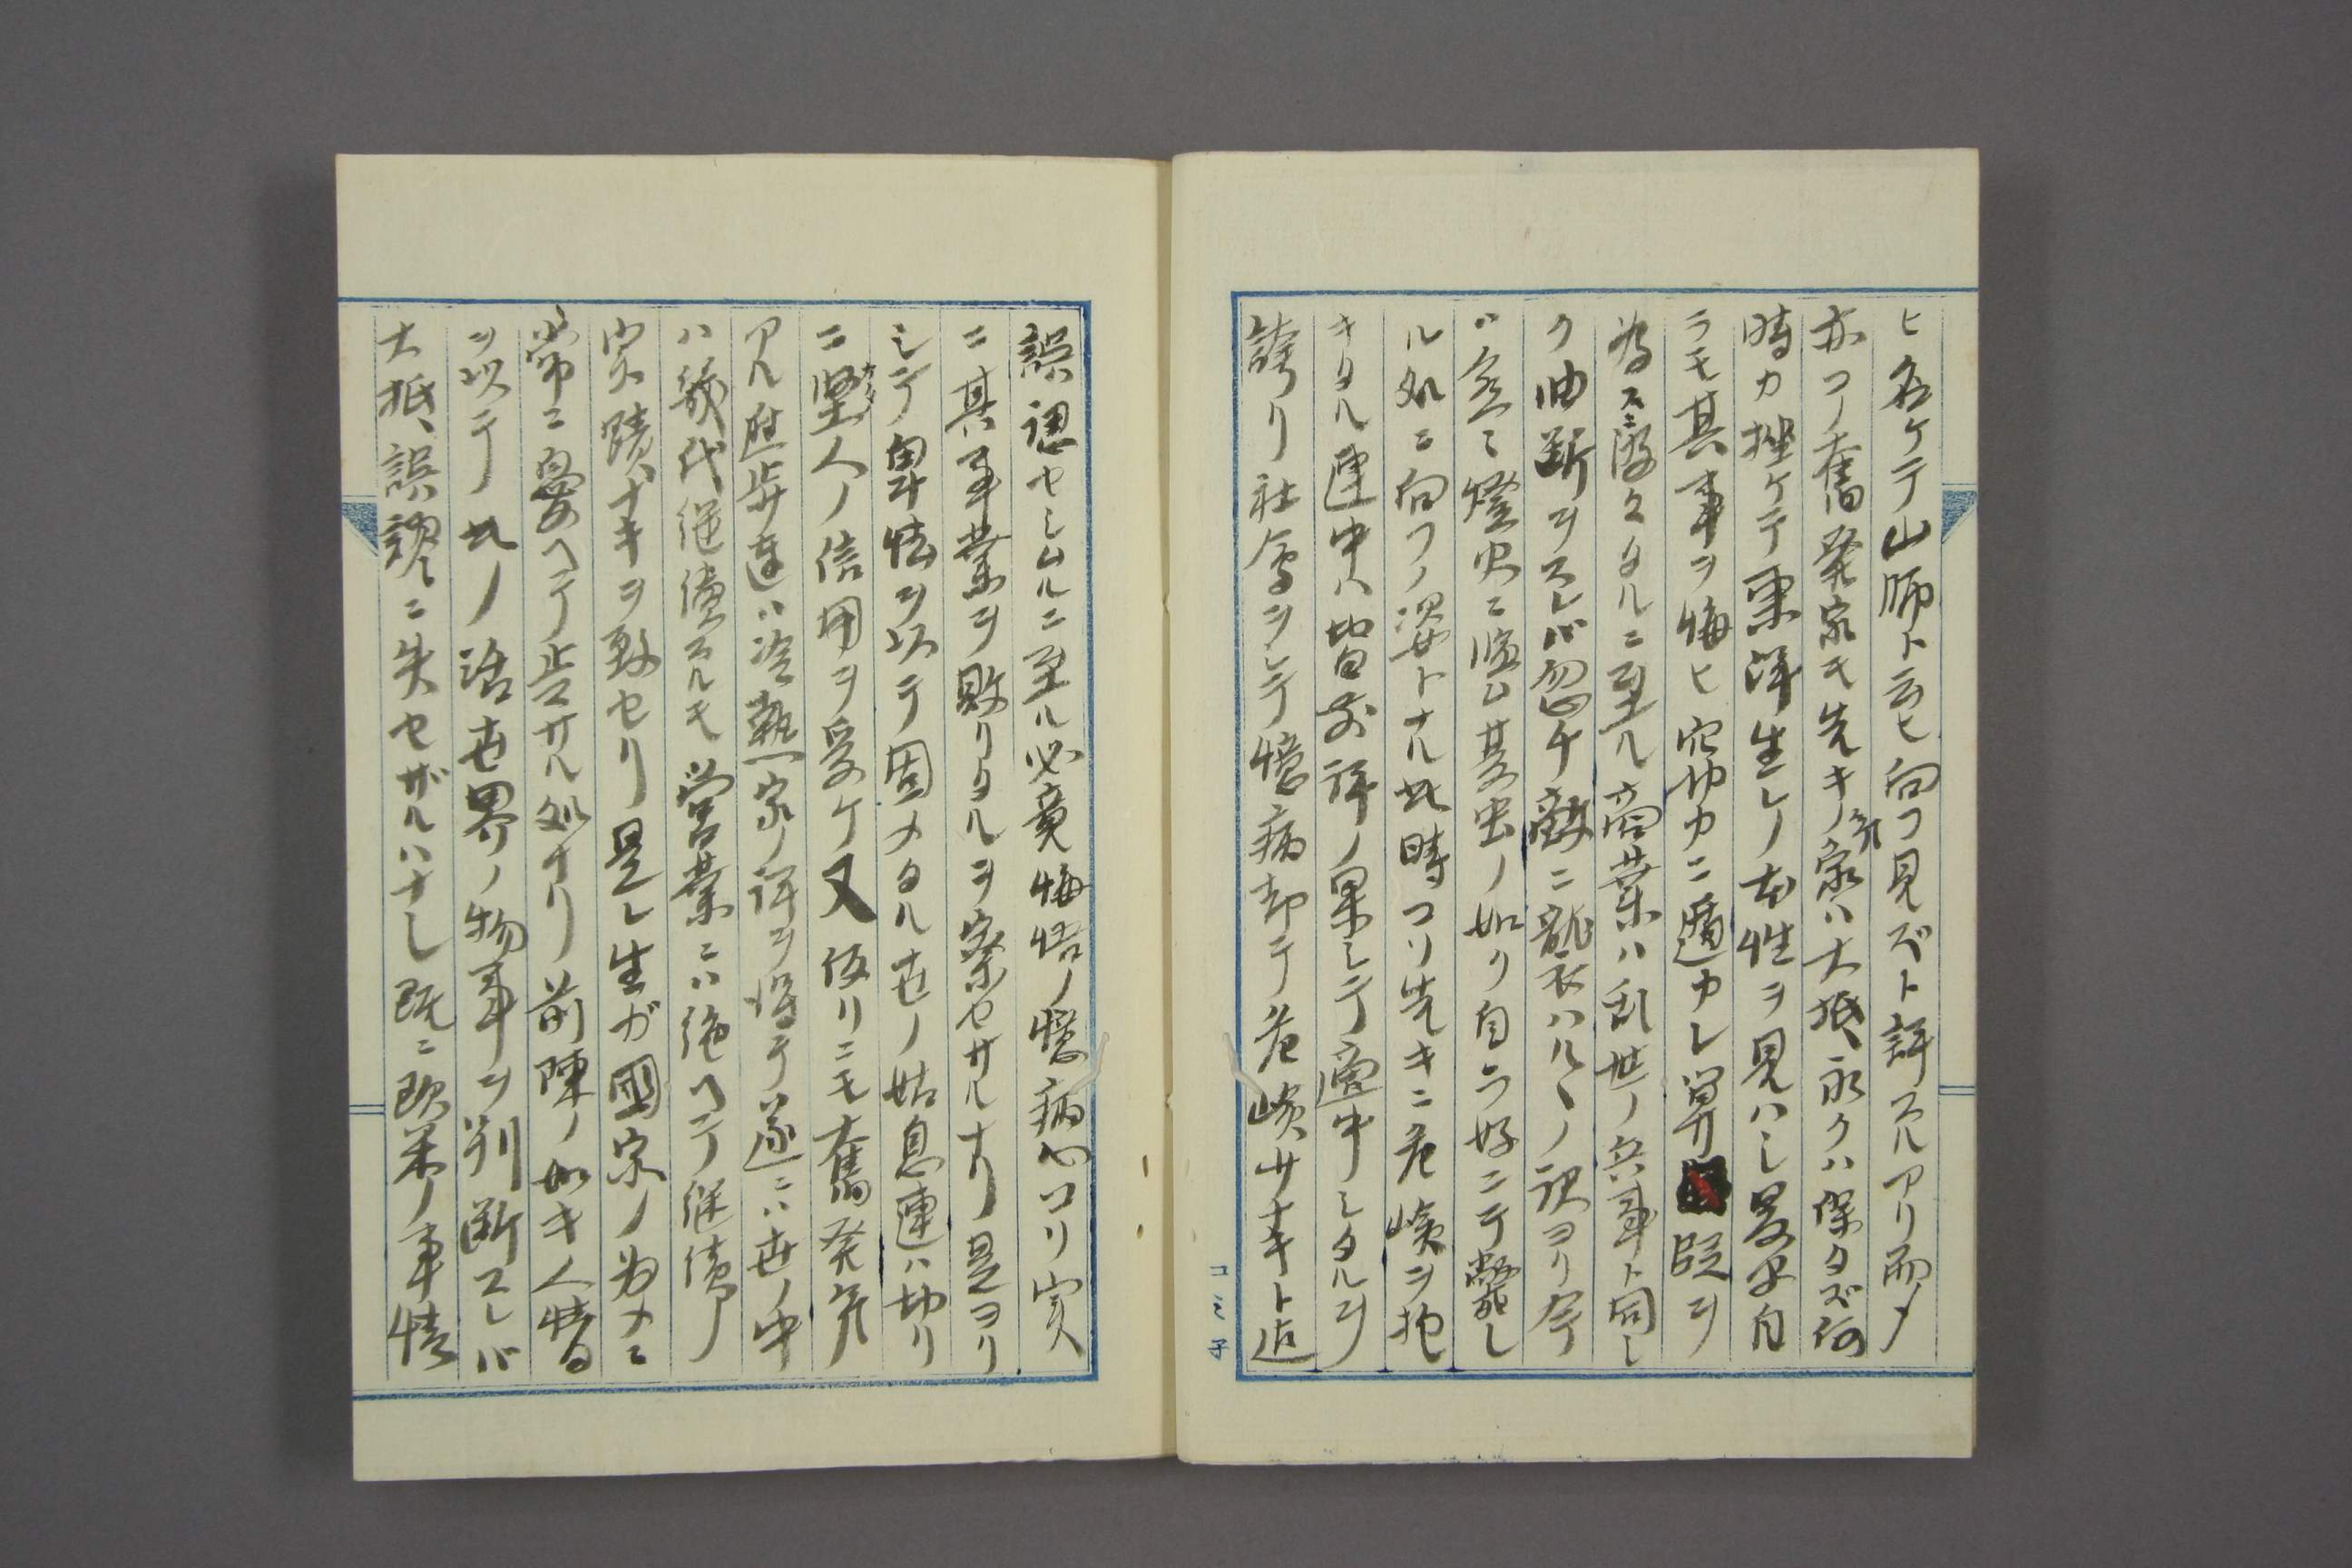 ヒ名ケテ山師ト云ヒ向フ見ズト評スルアリ而ノ
亦コノ奮発家モ先キノ家ハ大抵永クハ保タズ何
時カ挫ケテ東洋生レノ本性ヲ見ハシ
ラモ其事ヲ悔ヒ穴中カニ遁カレ
為スニ至ル商業ハ乱世ノ兵事ト同シ
ク油断ヲスレバ忽チ敵ニ襲ハルヽノ訳ヨリ今
ハ燈火ニ臨ム其虫ノ如ク自ラ好ンテ斃レ
ル処ニ向フノ姿トナル此時コソ先キニ危嶮ヲ抱
キタル連中ハ皆前評ノ果シテ適中シタルヲ
誇リ社会ヲシテ憶病却テ危嶮サナキト迄
誤認セシムルニ至ル必竟悔悟ノ憶病心コソ実
ニ其事業ヲ敗リタルヲ察セサルナリ是ヨリ
シテ卑怯ヲ以テ固メタル世ノ姑息連ハ切リ
ニ堅人ノ信用ヲ受ケ又仮リニモ奮発気
アル進歩連ハ冷熱家ノ評ヲ得テ遂ニハ世ノ中
ハ幾代継続スルモ営業ニハ絶ヘテ継続ノ
実蹟ナキヲ致セリ是レ生ガ國家ノ為メニ
常ニ憂ヘテ止マサル処ナリ前陳ノ如キ人情
ヲ以テ此ノ活世界ノ物事ヲ判断スレバ
大抵誤謬ニ失セザルハナシ既ニ欧米ノ事情